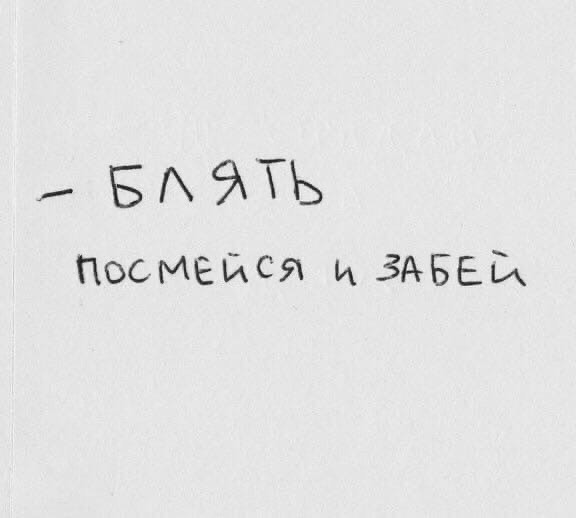 - БЛЯТЬ
ПОСМЕЙСЯ и ЗАБЕЙ